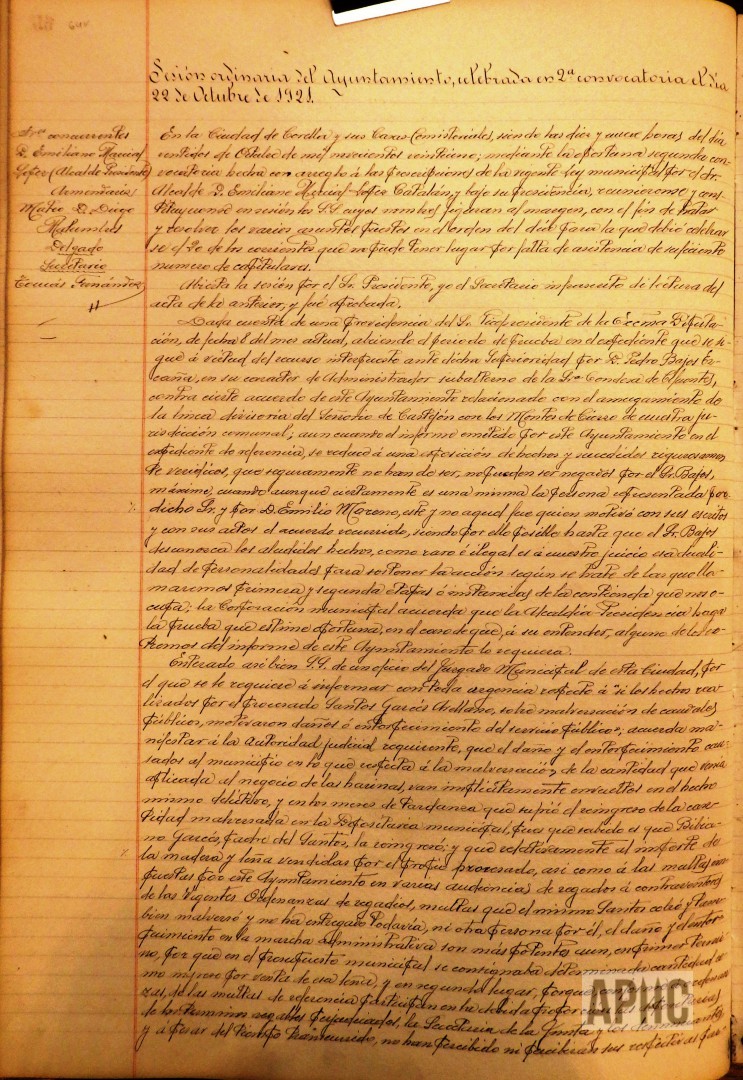 Sesión ordinaria del Ayuntamiento, celebrada en 2ª convocatoria el día
22 de Octubre de 1921.
Sres. concurrentes
D. Emiliano Marcial
López (Alcalde Presidente)
Armendáriz
Mateo D. Diego
Delgado
Secretario
Tomás Fernández
En la Ciudad de Corella y sus Casas Consistoriales, siendo las diez y nueve horas del día
veintidós de Octubre de mil novecientos veintiuno; mediante la oportuna segunda con-
vocatoria hecha con arreglo á las prescripciones de la vigente ley municipal por el Sr.
Alcalde D. Emiliano Marcial López Catalán, y bajo su presidencia, reuniéronse y cons-
tituyéronse en sesión los S.S. cuyos nombres figuran al margen, con el fin de tratar
y resolver los varios asuntos puestos en el orden del día para la que debió celebrar-
se el 20 de los corrientes que no pudo tener lugar por falta de asistencia de suficiente
número de capitulares.
Abierta la sesión por el Sr. Presidente, yo el Secretario infrascrito dí lectura del
acta de la anterior, y fué aprobada.
Dada cuenta de una providencia del Sr. Vicepresidente de la Excma Diputa-
ción, de fecha 8 del mes actual, abriendo el periodo de prueba en el expediente que se si-
gue á virtud del recurso interpuesto ante dicha Superioridad por D. Pedro Bajos Es-
caña, en su carácter de Administrador subalterno de la Sra Condesa de
contra cierto acuerdo de este Ayuntamiento relacionado con el amugamiento de
la línea divisoria del Señorío de Castejón con los Montes de Cierzo de nuestra ju-
risdicción comunal; aun cuando el informe emitido por este Ayuntamiento en el
expediente de referencia, se reduce á una exposición de hechos y sucedidos rigurosamen-
te verídicos, que seguramente no han de ser, no pueden ser negados por el Sr. Bajos,
máxime, cuando aunque ciertamente es una misma la persona representada por
dicho Sr. y por D. Emilio Moreno, este y no aquel fue quien motivó con sus escritos
y con sus actos el acuerdo recurrido, siendo por ello posible hasta que el Sr. Bajos
desconozca los aludidos hechos, como raro é ilegal es á nuestro juicio esa duali-
dad de personalidades para sostener la acción según se trate de las que lla-
maremos primera y segunda etapas ó instancias de la contienda que nos o-
cupa; la Corporación municipal acuerda que la Alcaldía-Presidencia haga
la prueba que estime oportuna, en el caso de que, á su entender, alguno de los ex-
tremos del informe de este Ayuntamiento lo requiera.
Enterado así bien S.S. de un oficio del Juzgado Municipal de esta Ciudad, por
el que se le requiere á informar con toda urgencia respecto á "si los hechos rea-
lizados por el procesado Santos García Arellano, sobre malversación de caudales
públicos, motivaron daños ó entorpecimiento del servicio público"; acuerda ma-
nifestar á la Autoridad judicial requirente, que el daño y el entorpecimiento cau-
sados al municipio en lo que respecta á la malversación de la cantidad que venía
aplicada al negocio de las harinas, van implícitamente envueltos en el hecho
mismo delictivo, y en los meses de tardanza que sufrió el reingreso de la can-
tidad malversada en la Depositaría municipal, pues que sabido es que Bibia-
no García, padre del Santos, la reingresó; y que relativamente al importe de
la madera y leña vendidas por el propio procesado, así como á las multas im-
puestas por este Ayuntamiento en varias audiencias de regados á contraventores
de las vigentes Ordenanzas de regadíos, multas que el mismo Santos cobró y tam-
bién malversó y no ha entregado todavía, ni otra persona por él, el daño y el entor-
pecimiento en la marcha administrativa son más potentes aun, en primer térmi-
no, por que en el presupuesto municipal se consignaba determinada cantidad co-
mo ingreso por venta de esa leña, y en segundo lugar, porque
zas, de las multas de referencia participan en la debida proporción
de los términos regantes perjudicados, la Secretaría de la Junta y los denunciantes
y á pesar del tiempo transcurrido, no han percibido ni percibirán sus respectivas par-
APHC